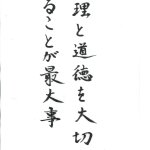 理と道徳を大切
ることが最大事